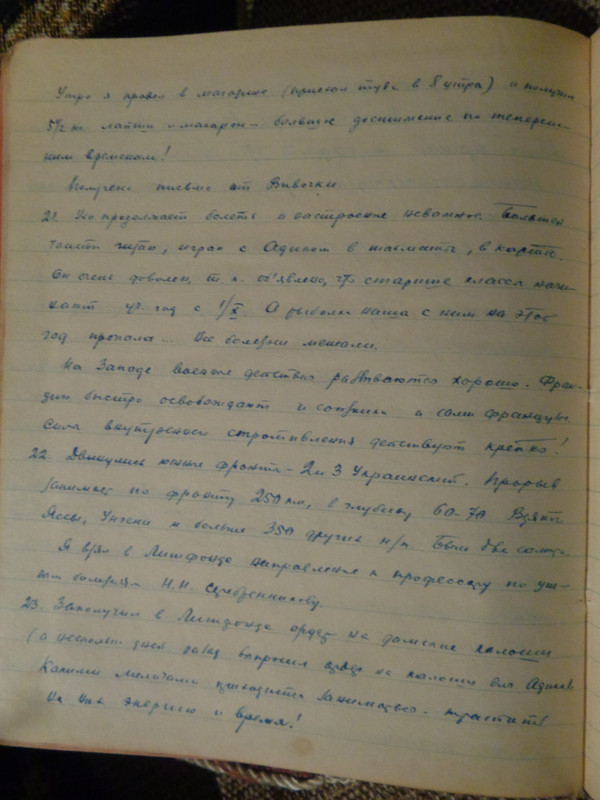 Утро я провел в магазине (приехал туда в 8 утра) и получил
5 1/2 кг лапши и макарон – большое достижение по тепереш-
ним временам!
Получено письмо от Вивочки.
21. Ухо продолжает болеть и настроение неважное. Большей
частью читаю, играю с Адиком в шахматы, в карты.
Он очень доволен, т. к. об'явлено, что старшие классы начи-
нают уч. год с 1/X. А рыбалка наша с ним на этот
год пропала... Все болезни мешали.
На Западе военные действия развиваются хорошо. Фран-
цию быстро освобождают и союзники и сами французы.
Силы внутреннего сопротивления действуют крепко!
22. Двинулись южные фронты – 2 и 3 Украинский. Прорыв
занимает по фронту 250 км, в глубину 60-70. Взяты
Яссы, Унгени и больше 350 других н/п. Были два салюта.
Я взял в Литфонде направление к профессору по уш-
ным болезням Н.Н.
23. Заполучил в Литфонде ордер на дамские калоши
(а несколько дней назад выпросил ордер на калоши для Адика).
Какими мелочами приходится заниматься – тратить
на них энергию и время!